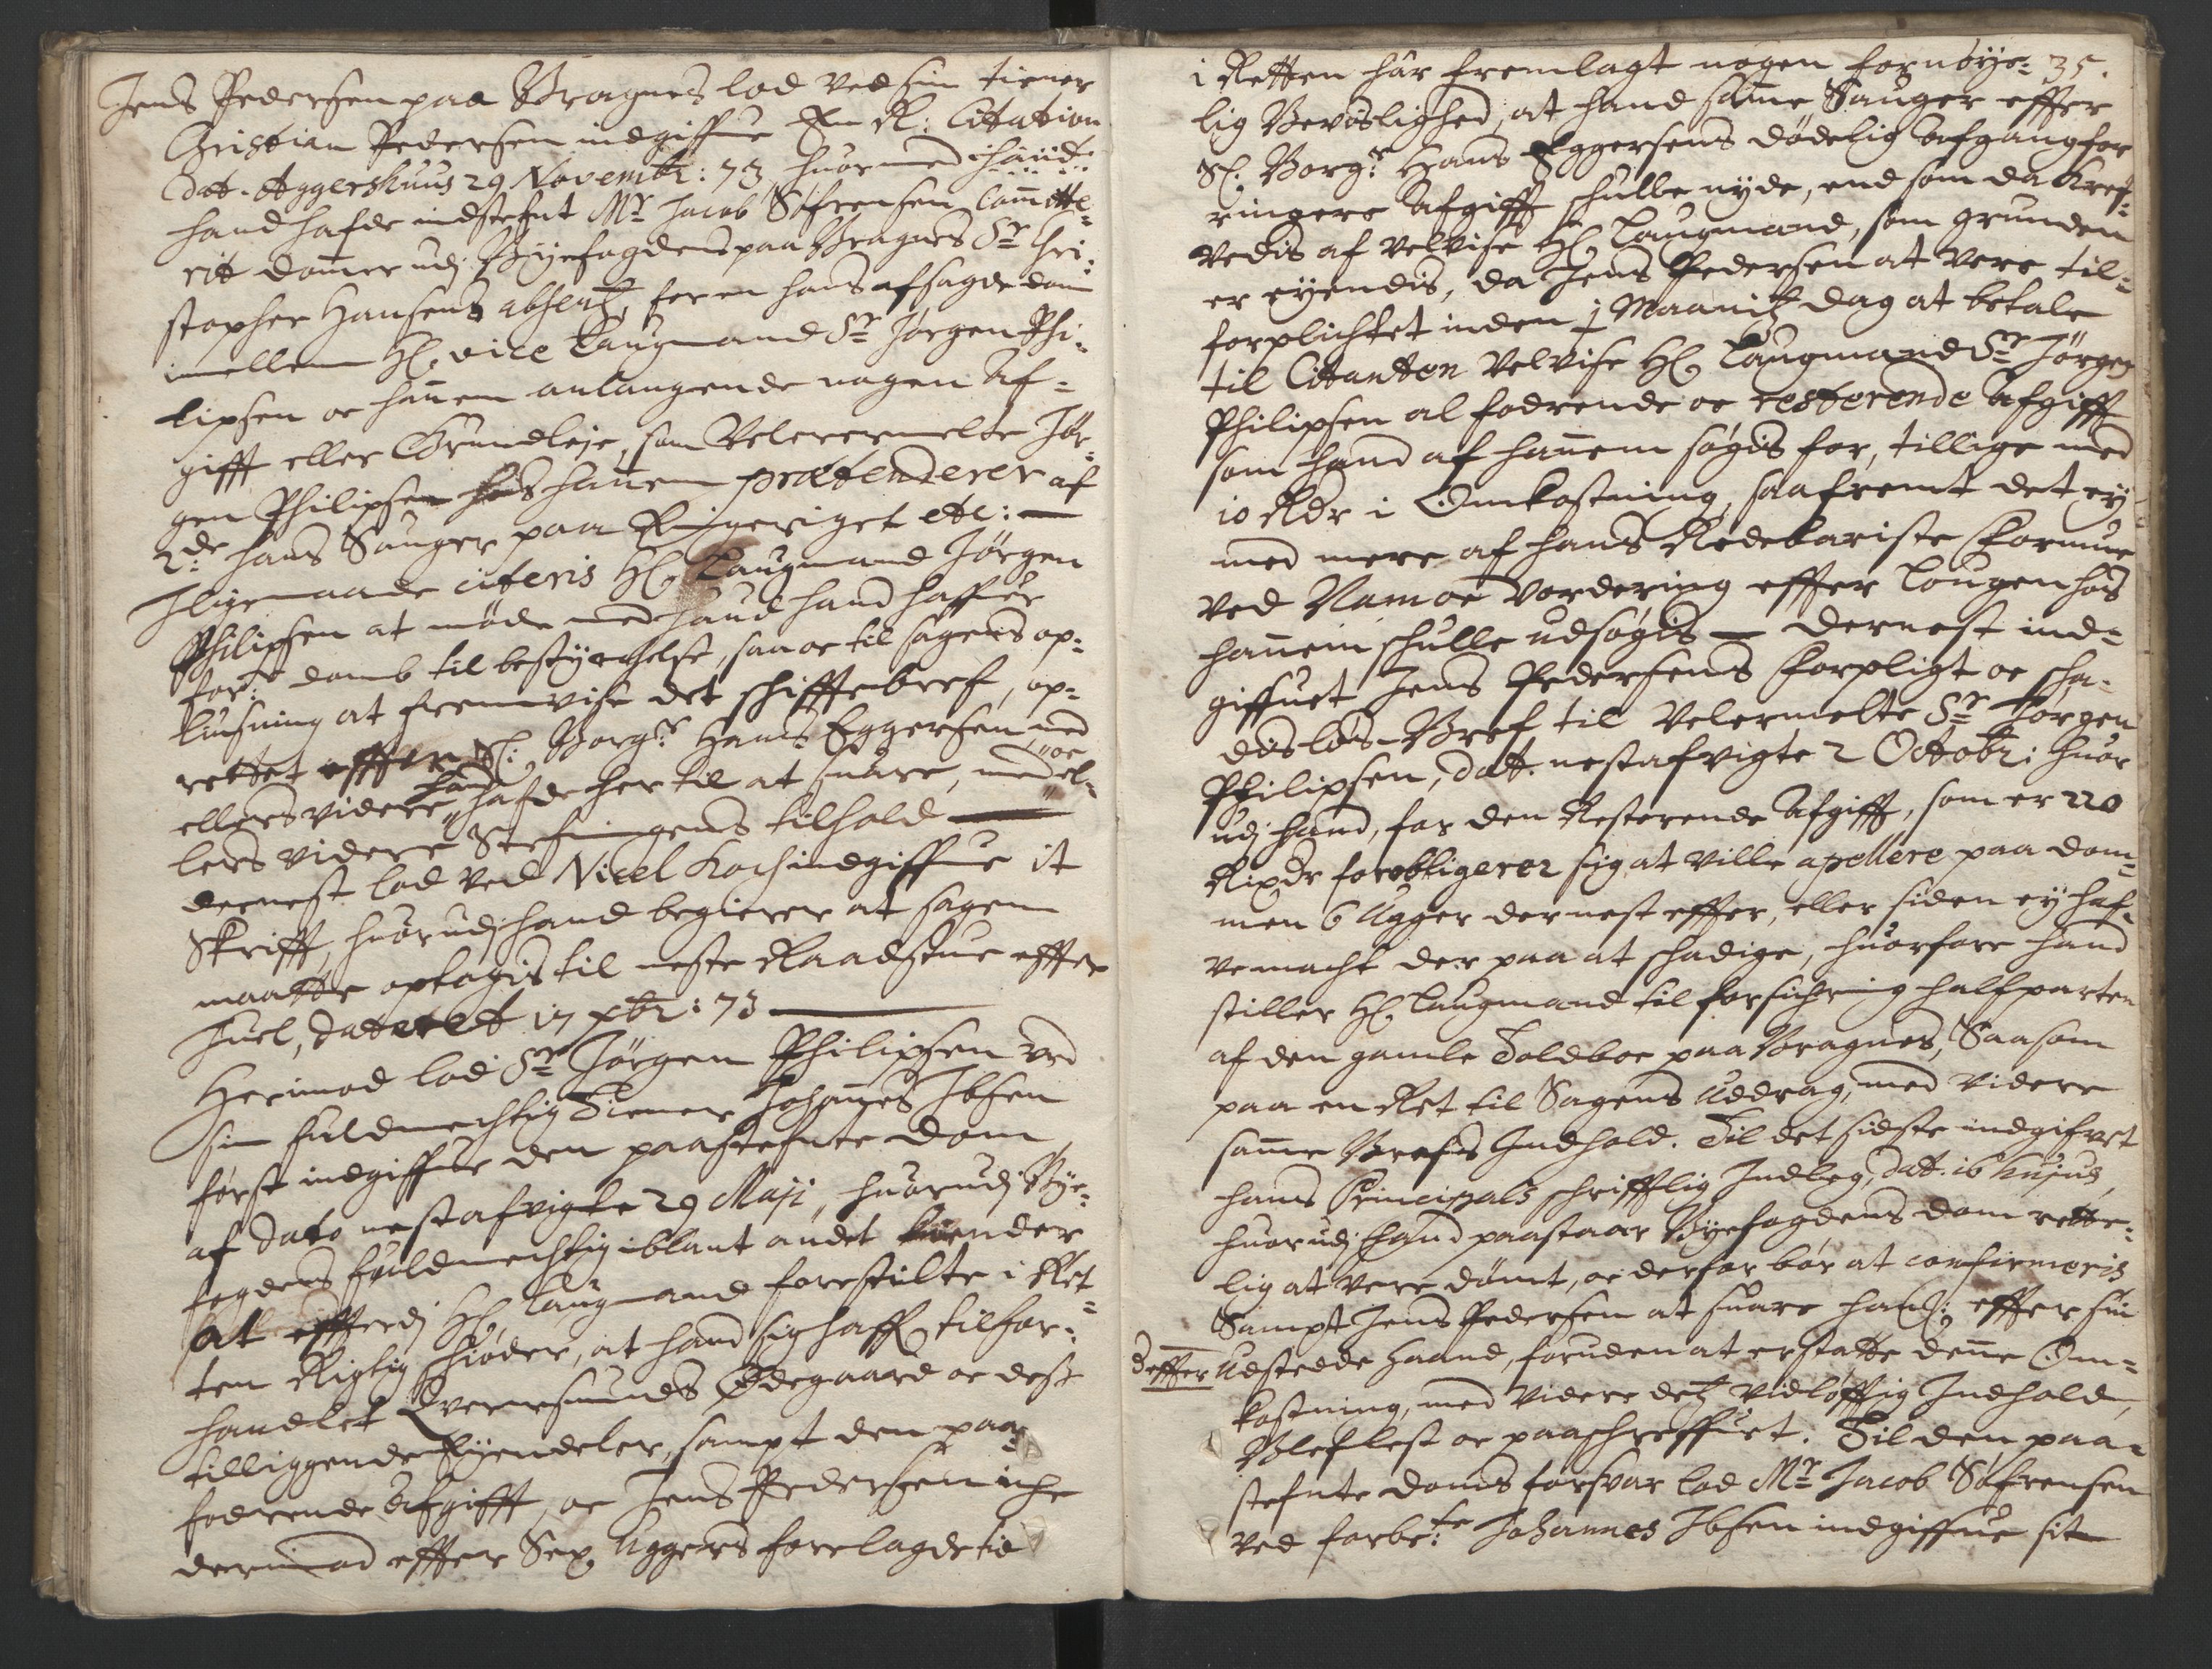 Jens Pedersen paa Bragnes lod ved sin tiener
Christian Pedersen indgiffue En K: Citation
dat. Aggershuus 29 Novembr: 73, huormed hand
hand hafde indstefnt Mr Jacob Søfrensen Committe-
rit dommer udj Byefogdens paa Bragnes Sr Chri-
stopher Hansens absentz, for en hans afsagde dom
imellem Hl. vice Laugmand Sr Jørgen Phi-
lipsen oc hannem anlangende nogen Af-
gifft eller Grundleje, som Velermelte Jør-
gen Philipsen hos hannem prætenderer af
2de hans Sauger paa Ringeriget etc: —
Jligemaade citeris Hl. Laugmand Jørgen
Philipsen at møde med huad hand haffuer
forne domb til bestyrchelse, saa oc til sagens op-
liusning at fremvise det schifftebref, op-
rettet effter Sl. Borgr Hans Eggersen, med
ellers videre hand hafde her til at suare, med oc el-
lers videre Stefningens tilhold —
dernest lod ved Nicel Koch indgiffue it
Skrifft, huorudj hand begierer at sagen
maatte optagis til neste Raadstue effter
Juel, dateret 17 xbr: 73 —
Herimod lod Sr Jørgen Philipsen ved
sin fuldmechtig Tiener Johannes Ibsen
først indgiffue den paastefnte dom
af dato nestafvigte 29 Maji, huorudj Bye-
fogdens fuldmechtig iblant andet kiender
at effterdj Hl. Laugmand forestilte i Ret-
ten Rigtig schiøder, at hand sig haffr tilfor-
handlet Qvernsunds Ødegaard oc dess
tilliggende Eyendeler, sampt den paa-
fodrende Afgifft, oc Jens Pedersen iche
derimod effter Sex Uggers forelagde tid
i Retten har fremlagt nogen fornøye- 35.
lig Bevislighed, at hand samme Sauger effter
Sl. Borgr Hans Eggersens dødelig Afgang for
ringere Afgifft schulle nyde, end som da Kref-
vedis af velvise Hl. Laugmand, som grunden
er eyendis, da Jens Pedersen at vere til-
forplichtet inden 1 Maanitz dag at betale
til Citanten Velvise Hl. Laugmand Sr Jørgen
Philipsen al fodrende oc resterende Afgifft
som hand af hannem søgis for, tillige med
10 Rdr i Omkostning, saafremt det ey
med mere af hans Redebariste Formue
ved Nam oc Vordering effter Lougen hos
hannem schulle udsøgis — dernest ind-
giffuet Jens Pedersens Forpligt oc scha-
disløs-Bref til Velermelte Sr Jørgen
Philipsen, datt. nestafvigte 2 Octobr: huor
udj hand, for den Resterende Afgifft, som er 220
Rixdr forobligerer sig at ville apellere paa dom-
men 6 Ugger dernest effter, eller siden ey haf-
ve macht der paa at schadige, huorfore hand
stiller Hl. Laugmand til forsichring halfparten
af den gamle Toldboe paa Bragnes, Saasom
paa en Ret til Sagens Uddrag, med videre
samme Brefs Indhold. Til det sidste indgifvet
hans Principals schrifftlig Indleg, dat. 16 hujus,
huorudj hand paastaar Byefogdens dom rette-
lig at vere dømt, oc derfor bør at confirmeris
Sampt Jens Pedersen at suare hans effter sin
Deffter udstedde Haand, foruden at erstatte denne Om-
kostning, med videre detz vidløfftig Indhold,
Blef lest oc paaschreffuet. Til den paa-
stefnte doms forsvar lod Mr Jacob Søfrensen
ved forbete Johannes Ibsen indgiffue sit